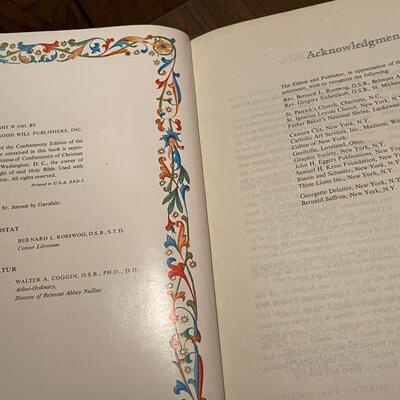 GHT © 1961, BY
OOD WILL PUBLISHERS, INC.
of the Confraternity Edition of the
contained in this book is repro-
license of Confraternity of Christian
Washington, D. C., the owner of
ght of said Holy Bible. Used with
sion. All rights reserved.
Printed in U.S.A. BRD-5
St. Jerome by Garofalo
STAT
BERNARD L. ROSSWOG, O.S.B., S.T.D.
Censor Librorum
ATUR
WALTER A. COGGIN, O.S.B., PH.D., D.D.
Abbot-Ordinary,
Diocese of Belmont Abbey Nullius
Acknowledgmen
The Editor and Publisher, in appreciation of the
assistance, wish to recognize the following:
Rev. Bernard L. Rosswog, O.S.B., Belmont A
Rev. Gregory Eichenlaub, O.S.B., St. Michael
N.C.
St. Patrick's Church, Charlotte, N.C.
St. Ignatius Loyola Church, New York, N.Y.
Father Baker's National Shrine, Lackawanna,
N.Y.
Camera Clix, New York, N.Y.
Catholic Art Services, Inc., Madison, Wis
Colten of New York.
Geofville, Loveland, Ohio.
Graphic Society, New York, N.Y.
John H. Eggers Publications, New York
Samuel H. Kress Foundation, New York
Simon and Schuster, New York, N.Y.
Three Lions Inc., New York, N.Y.
Georgette Delattre, New York, N.Y.
Bernard Saffron, New York, N.Y.